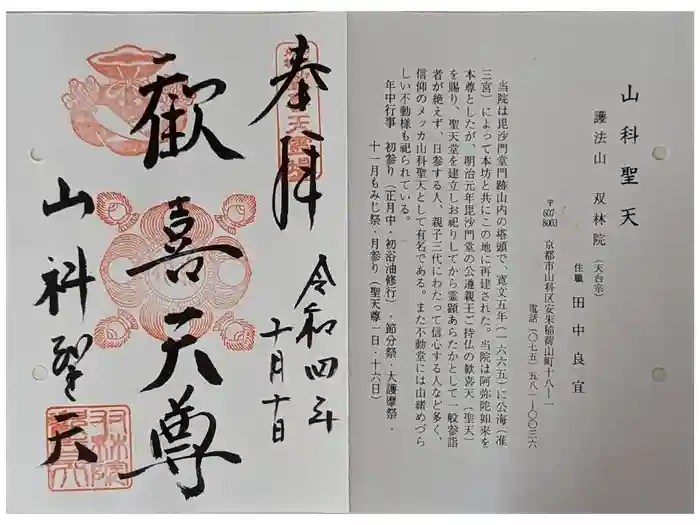 奉拝
令和四年
十月十日
歓喜天尊
山科聖天
双林院
山科聖天
護法山 双林院(天台宗)
住職 田中良宜
〒607-8003 京都市山科区安朱稲荷山町十八ー一
電話(〇七五)五八一ー〇〇三六
当院は毘沙門堂門跡山内の塔頭で、寛文五年(一六六五)に公海(准
三宮)によって本坊と共にこの地に再建された。当院は阿弥陀如来を
本尊としたが、明治元年毘沙門堂の公遵親王ご持仏の歓喜天(聖天)
を賜り、聖天堂を建立しお祀りしてから霊顕あらたかとして一般参詣
者が絶えず、日参する人、親子三代にわたって信心する人など多く、
信仰のメッカ山科聖天として有名である。また不動堂には由緒めづら
しい不動様も祀られている。
年中行事 初参り(正月中・初浴油修行)・節分祭・大護摩祭・
十一月もみじ祭・月参り(聖天尊一日・十六日)